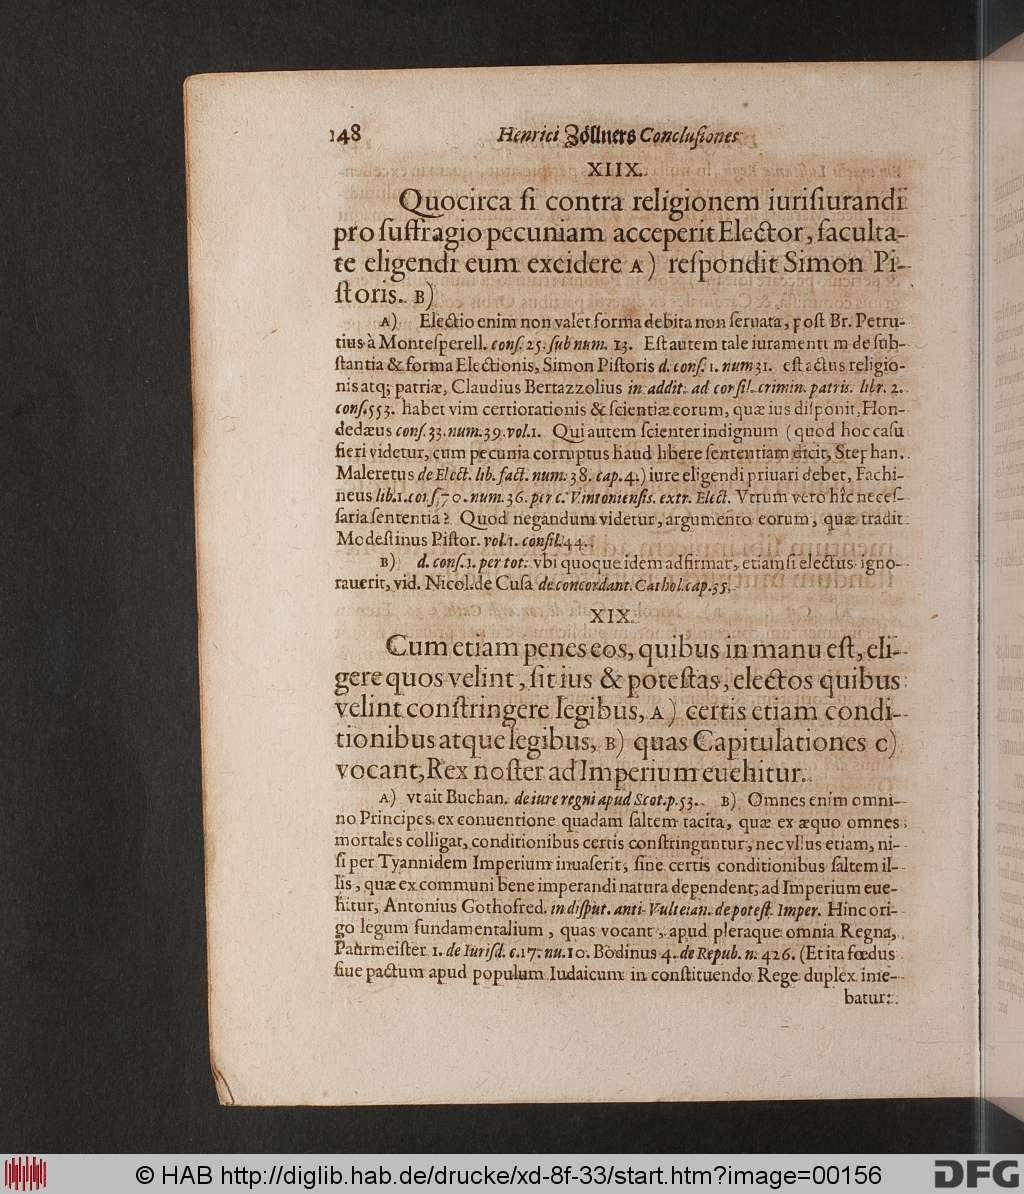 148 Henrici Zöllners Conclusiones
XIIX.
Quocirca si contra religionem iurisiurandi
pro suffragio pecuniam acceperit Elector, faculta-
te eligendi eum excidere A) respondit Simon Pi-
storis. B)
A) Electio enim non valet forma debita non seruata, post Br. Petru-
tius à Montesperell. cons. 25. sub num. 13. Est autem tale iuramentum de sub-
stantia & forma Electionis, Simon Pistoris d. cons. 1. num 31. est actus religio-
nis atq; patriæ, Claudius Bertazzolius in addit. ad consil. crimin. patris. libr. 2.
cons. 553. habet vim certiorationis & scientiæ eorum, quæ ius disponit, Hon-
dedæus cons. 33. num. 39. vol. 1. Qui autem scienter indignum (quod hoc casu
fieri videtur, cum pecunia corruptus haud libere sententiam dicit, Stephan.
Maleretus de Elect. lib. fact. num. 38. cap. 4.) iure eligendi priuari debet, Fachi-
neus lib. 1. cons. 70. num. 36. per c. Vintoniensis. extr. Elect. Vtrum vero hîc neces-
saria sententia? Quod negandum videtur, argumento eorum, quæ tradit
Modestinus Pistor. vol. 1. consil. 44.
B) d. cons. 1. per tot. vbi quoque idem adfirmat, etiamsi electus igno-
rauerit, vid. Nicol. de Cusa de concordant. Cathol. cap. 35.
XIX.
Cum etiam penes eos, quibus in manu est, eli-
gere quos velint, sit ius & potestas, electos quibus
velint constringere legibus, A) certis etiam condi-
tionibus atque legibus, B) quas Capitulationes C)
vocant, Rex noster ad Imperium euehitur.
A) vt ait Buchan. de iure regni apud Scot. p. 53. B) Omnes enim omni-
no Principes ex conuentione quadam saltem tacita, quæ ex æquo omnes
mortales colligat, conditionibus certis constringuntur, nec vllus etiam, ni-
si per Tyannidem Imperium inuaserit, sine certis conditionibus saltem il-
lis, quæ ex communi bene imperandi natura dependent, ad Imperium eue-
hitur, Antonius Gothofred. in disput. anti-Vulteian. de potest. Imper. Hinc ori-
go legum fundamentalium, quas vocant, apud pleraque omnia Regna,
Paurmeister 1. de Iurisd. c. 17. nu. 10. Bodinus 4. de Repub. n. 426. (Et ita fœdus
siue pactum apud populum Iudaicum in constituendo Rege duplex inie-
batur:
© HAB http://diglib.hab.de/drucke/xd-8f-33/start.htm?image=00156
DFG